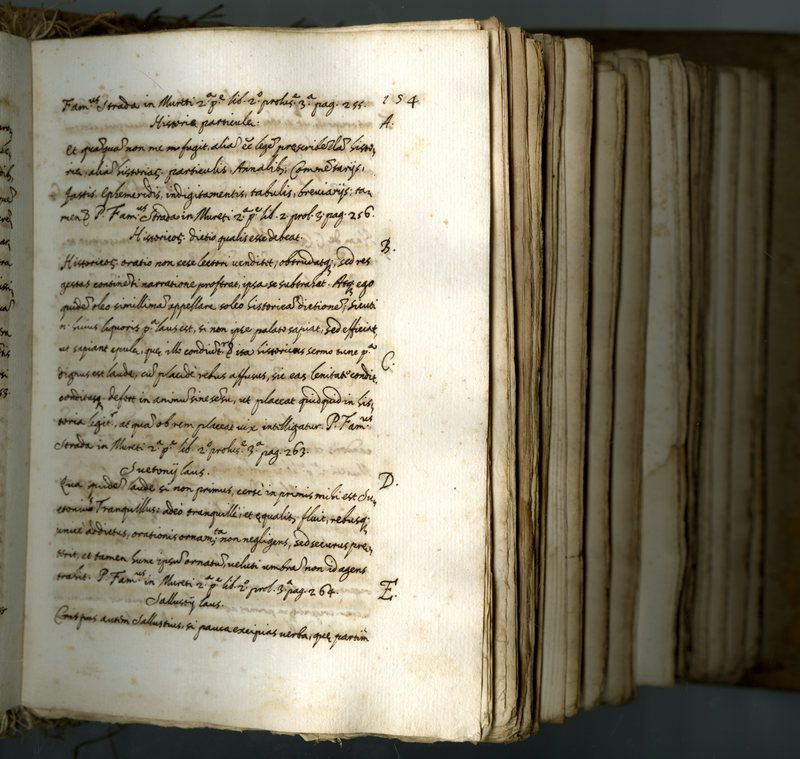 Fam.us Strada in Mureti 2.a p.e lib. 2.o prolus.e 3.a pag. 255. 154
Historiæ particulæ. A.
Et quãquã non me me fugit, aliã eẽ legẽ prescribẽdã histo-
riæ, aliã historiæ particulis, Annalib, Commẽtarijs,
fastis, Ephemeridis, indigitamentis, tabulis, breviarijs, ta-
men P. Fam.us Strada in Mureti 2.a p.e lib. 2. prol. 3. pag. 256.
Historicoȩ dictio qualis esse debeat. B.
Historicoȩ oratio non ee se lectori venditet, obtrudatq, sed res
gestas continẽti narratione proferat, ipsa se subtrahat. Atq ego
quidẽ oleo simillimã appellare soleo historicã dictionẽ, sicuti
n. huius liquoris p.a laus est, si non ipse palato sapiat, sed efficiat,
ut sapiant epulæ, quȩ illo condiũtr, ita historicus sermo tunc p.a
dignus est laude, cũ placidè rebus affusus, sic eas lenitate condit, C.
conditasq defert in animũ sine sẽsu, ut placeat quidquid in his-
toria legitr, at quã ob rem placeat uix intelligatur. P. Fam.us
Strada in Mureti 2.a p.e lib. 2.o prolus.e 3.a pag. 263.
Suetonij laus. D.
Qua quidẽ laude si non primus, certè in primis mihi est Su-
etonius Tranquillus: adeo tranquillè, et equalit fluit, rebusq
unicè addictus, orationis ornam.ta non negligens, sed securus præ-
terit, et tamen hunc ipsũ ornatũ, veluti umbrã non id agens
trahit. P. Fam.us in Mureti 2.a p.e lib. 2.o prol. 3.a pag. 264.
Sallustij laus. E.
Crispus autẽm Sallustius, si pauca excipias verba, quȩ partim